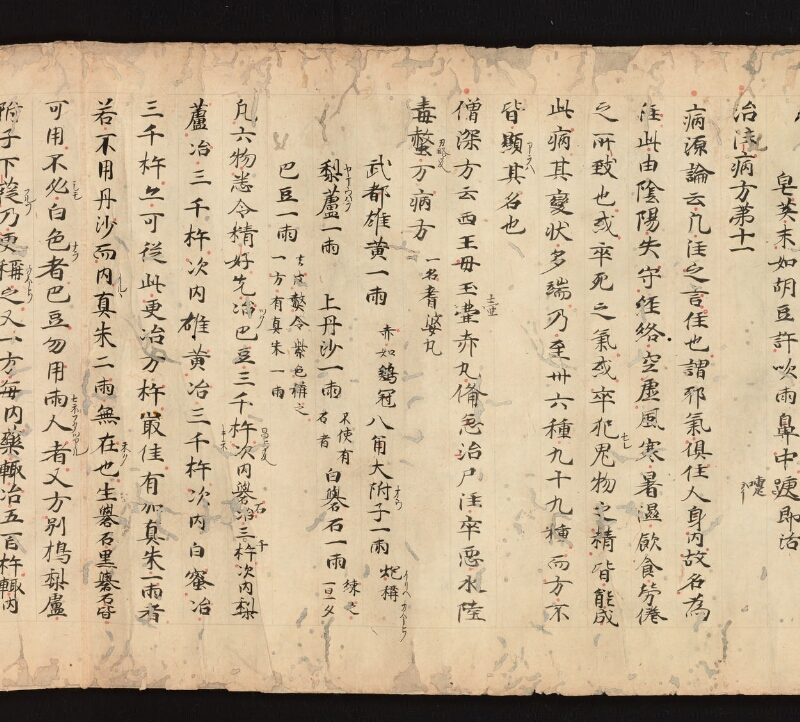 皂莢末如胡豆許吹兩鼻中嚏即治
治注病方第十一
病源論云凡注之言住也謂邪氣俱住人身内故名為
注此由陰陽失守經絡空虚風寒暑濕飲食勞倦
之所致也或卒死之氣或卒犯鬼物之精皆能成
此病其變状多端乃至卅六種九十九種而方不
皆顯其名也
僧深方云西王母玉壺赤丸備急治尸注卒惡水陸
毒螫万病方 一名耆婆丸
武都雄黄一兩 赤如鷄冠 八角大附子一兩 炮稱
梨蘆一兩 上丹沙一兩 不使有石者 白礬石一兩 練之一旦夕
巴豆一兩 去皮熬令紫色稱之 一方有真朱一兩
凡六物悉令精好先冶巴豆三千杵次内礬石冶三千杵次内梨
蘆冶三千杵次内雄黄冶三千杵次内白蜜冶
三千杵亦可從此更冶万杵最佳有加真朱一兩者
若不用丹沙而内真朱二兩無在也生礬石黒礬石皆
可用不必白色者巴豆勿用兩人者又方別搗梨蘆
附子下簁乃更稱之又一方毎内藥輙冶五百杵輙内